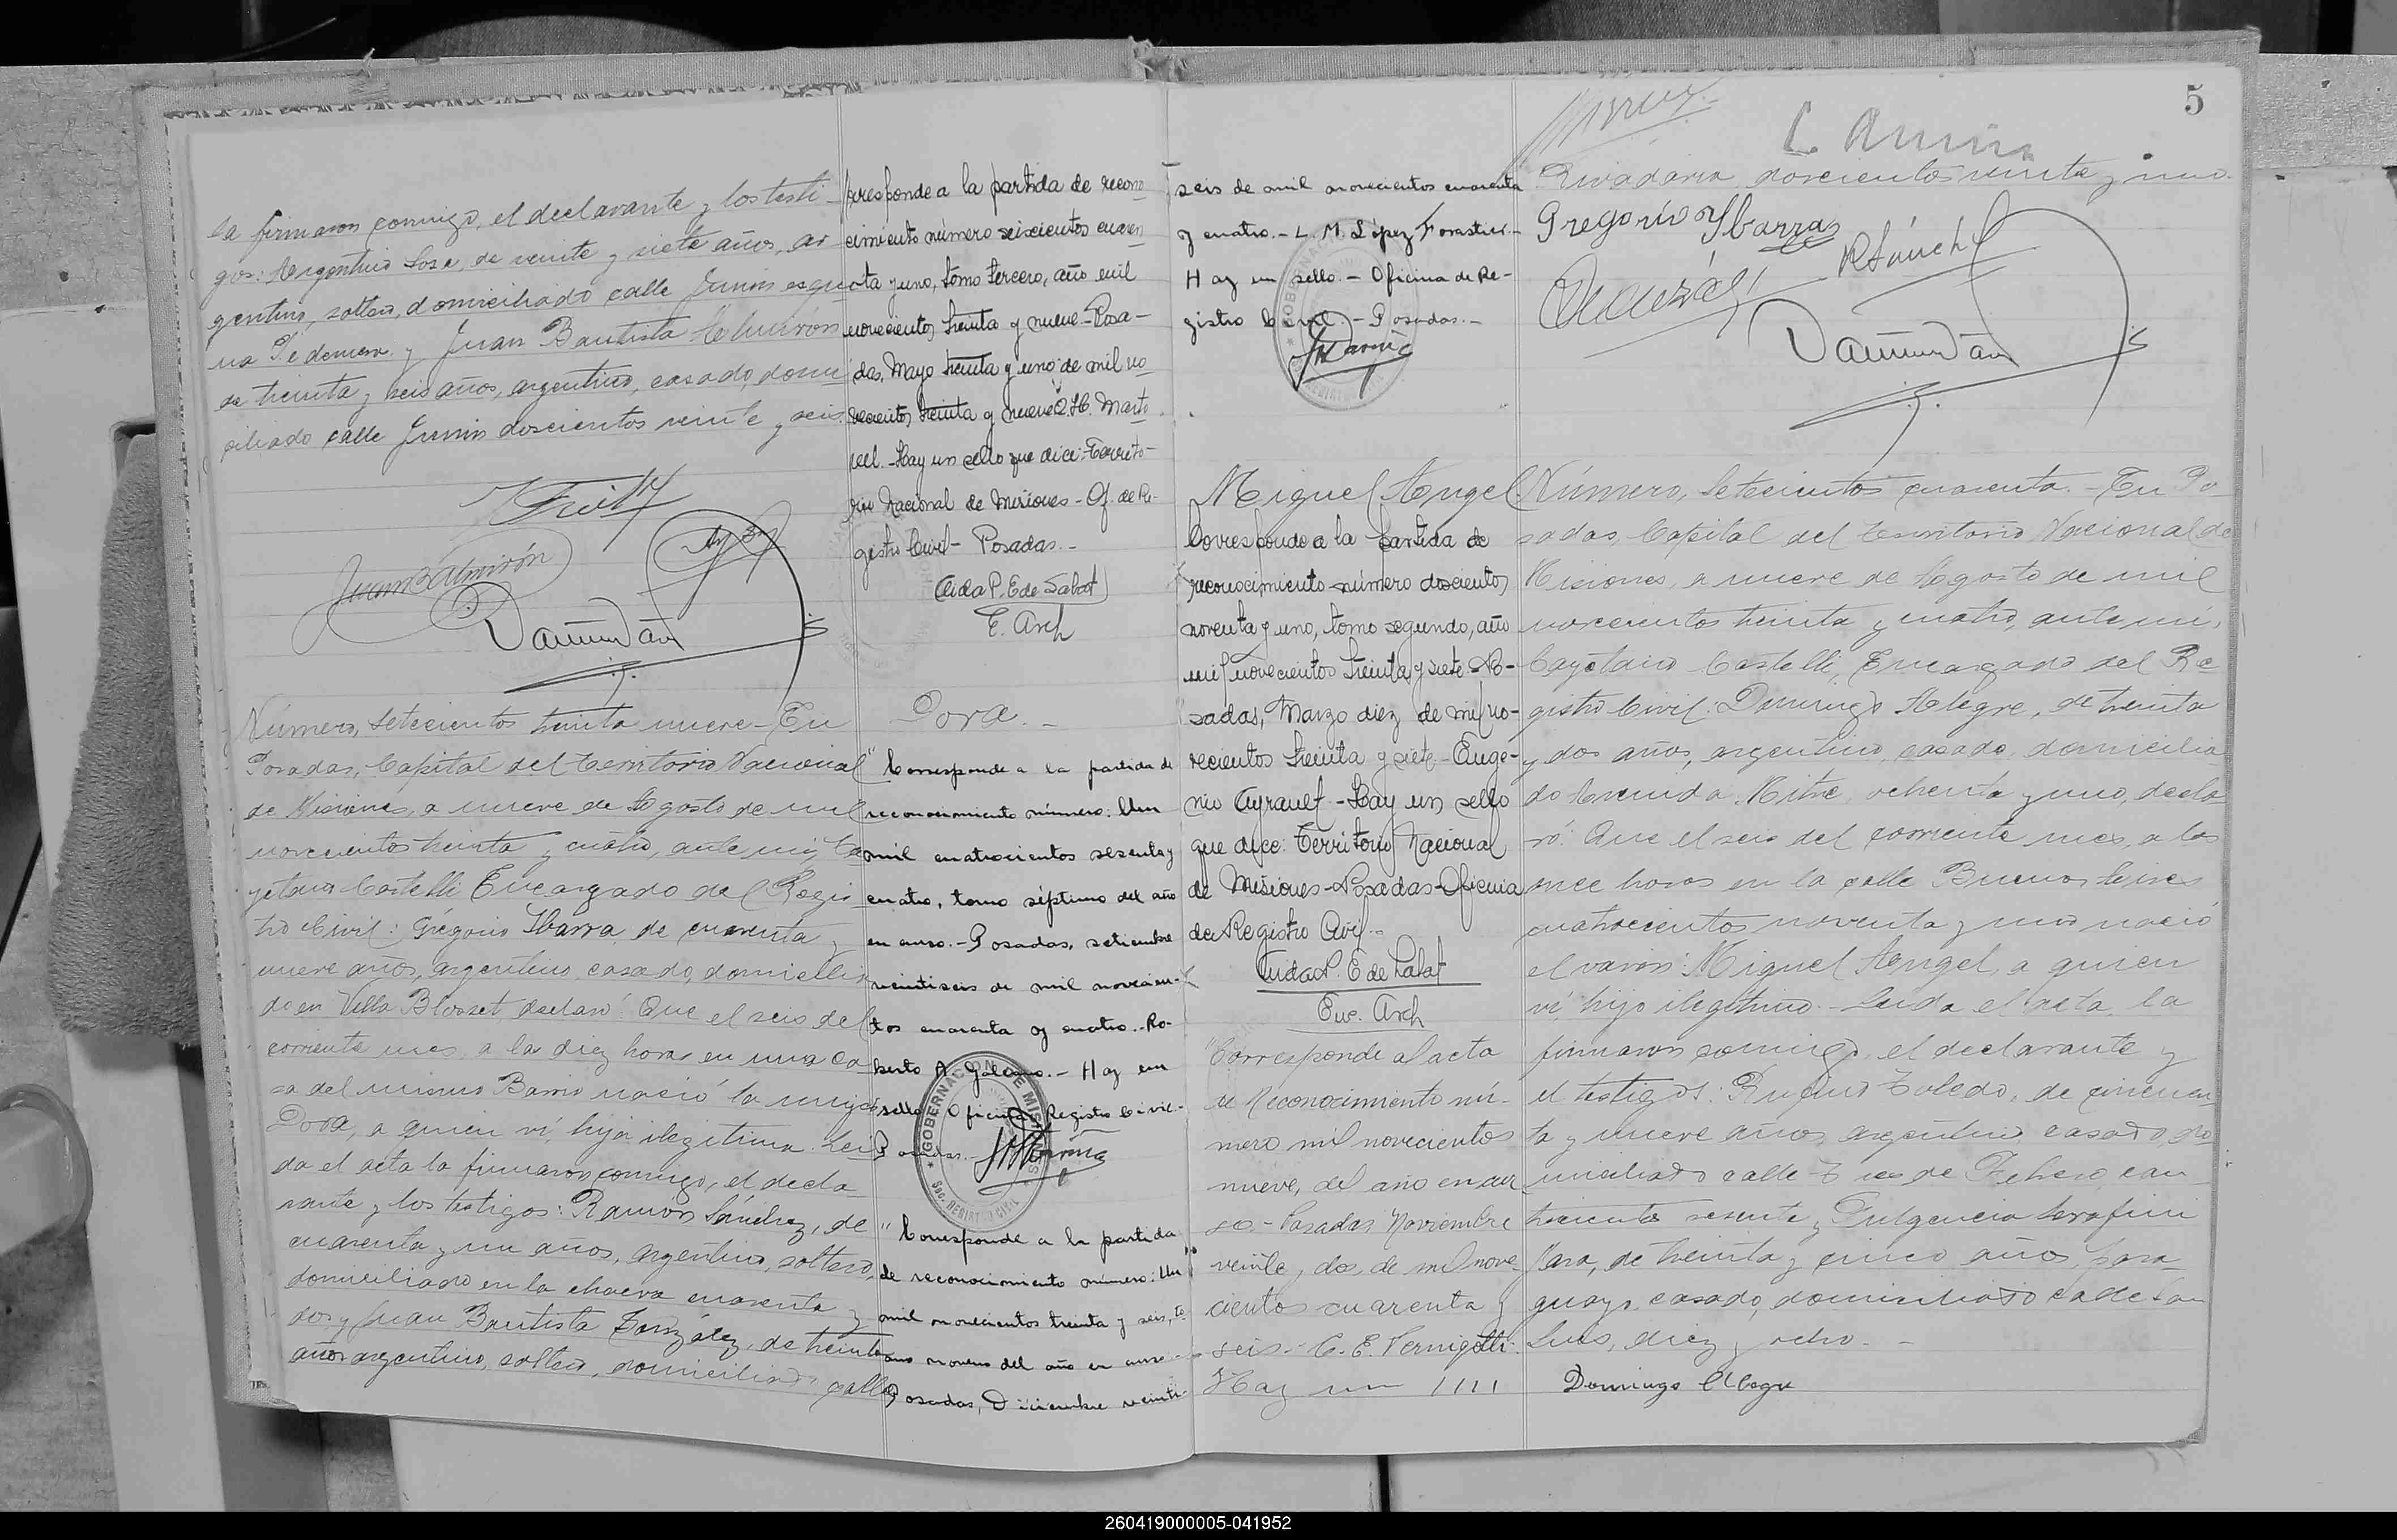 la firmaron conmigo, el declarante y los testi-
gos: Argentino Sosa, de veinte y siete años, ar
gentino, soltero, domiciliado calle Junin esqui
na Pedernera y Juan Bautista Almirón
de treinta y seis años, argentino, casado, domi
ciliado calle Junin doscientos veinte y seis.
JuanBAlmirón
Número, Setecientos treinta nueve - En
Posadas, Capital del Territorio Nacional
de Misiones, a nueve de Agosto de mil
novecientos treinta y cuatro, ante mi, Ca
yetano Castelli Encargado del Regis
tro Civil: Gregorio Ibarra, de cuarenta y
nueve años, argentino, casado, domicilia
do en Villa Blosset, declaró: Que el seis del
corriente mes, a la diez horas en una ca
sa del mismo Barrio nació la mujer
Dora, a quien ví, hija ilegítima. Lei
da el acta la firmaron conmigo, el decla
rante y los testigos: Ramón Sánchez, de
cuarenta y un años, argentino, soltero,
domiciliado en la chacra cuarenta y
dos y Juan Bautista González, de treinta
años argentino, soltero, domiciliado calle
rresponde a la partida de recono
cimiento número seiscientos cuaren
ta y uno, tomo tercero, año mil
novecientos treinta y nueve.-Posa-
das, Mayo treinta y uno de mil no
vecientos treinta y nueve
vel.-Hay un sello que dice: Territo-
rio Nacional de Misiones - Of. de Re-
gistro Civil- Posadas.-
E. Arch
Dora.-
"Corresponde a la partida de
reconocimiento número: Un
mil cuatrocientos sesenta y
cuatro, tomo séptimo del año
en curso.-Posadas, setiembre
veintiseis de mil novecien-
tos cuarenta y cuatro.-Ro-
berto A. Galeano.- Hay un
sello Oficina Registro Civil-
Posadas.-
GOBERNACION DE MISIONES
SEC. REGISTRO CIVIL
"Corresponde a la partida
de reconocimiento número: Un
mil novecientos treinta y seis, to
mo noveno del año en curso.-
Posadas, Diciembre veinti-
seis de mil novecientos cuarenta
y cuatro.- L. M. López Forastier.-
Hay un sello.- Oficina de Re-
gistro Civil.- Posadas.-
Miguel Angel.
Corresponde a la partida de
reconocimiento número doscientos
noventa y uno, tomo segundo, año
mil novecientos treinta y siete-Po-
sadas, Marzo diez de mil no-
vecientos treinta y siete-Euge-
nio Ayrault-Hay un sello
que dice: Territorio Nacional
de Misiones-Posadas-Oficina
de Registro Civil.-
Enc. Arch
"Corresponde al acta
de Reconocimiento nú-
mero mil novecientos
nueve, del año en cur
so.- Posadas Noviembre
veinte y dos, de mil nove
cientos cuarenta y
seis.- C. E. Vernigotti.
Hay un
5
Rivadavia doscientos veinte y uno.
Gregorio Ybarra
RSánchez
Número, Setecientos cuarenta.- En Po
sadas, Capital del Territorio Nacional de
Misiones, a nueve de Agosto de mil
novecientos treinta y cuatro, ante mi,
Cayetano Castelli, Encargado del Re
gistro Civil: Domingo Alegre, de treinta
y dos años, argentino, casado, domicilia
do Avenida Mitre, ochenta y uno, decla
ró: Que el seis del corriente mes, a las
once horas en la calle Buenos Aires
cuatrocientos noventa y uno nació
el varon: Miguel Angel, a quien
ví, hijo ilegítimo.- Leida el acta, la
firmaron conmigo, el declarante y
el testigos: Rufino Toledo, de cincuen
ta y nueve años, argentino, casado, do
miciliado calle Tres de Febrero, cua
trocientos sesenta y Fulgencio Serafin
Jara, de treinta y cinco años, para
guayo, casado, domiciliado calle San
Luis, diez y ocho.-
Domingo Alegre
260419000005-041952